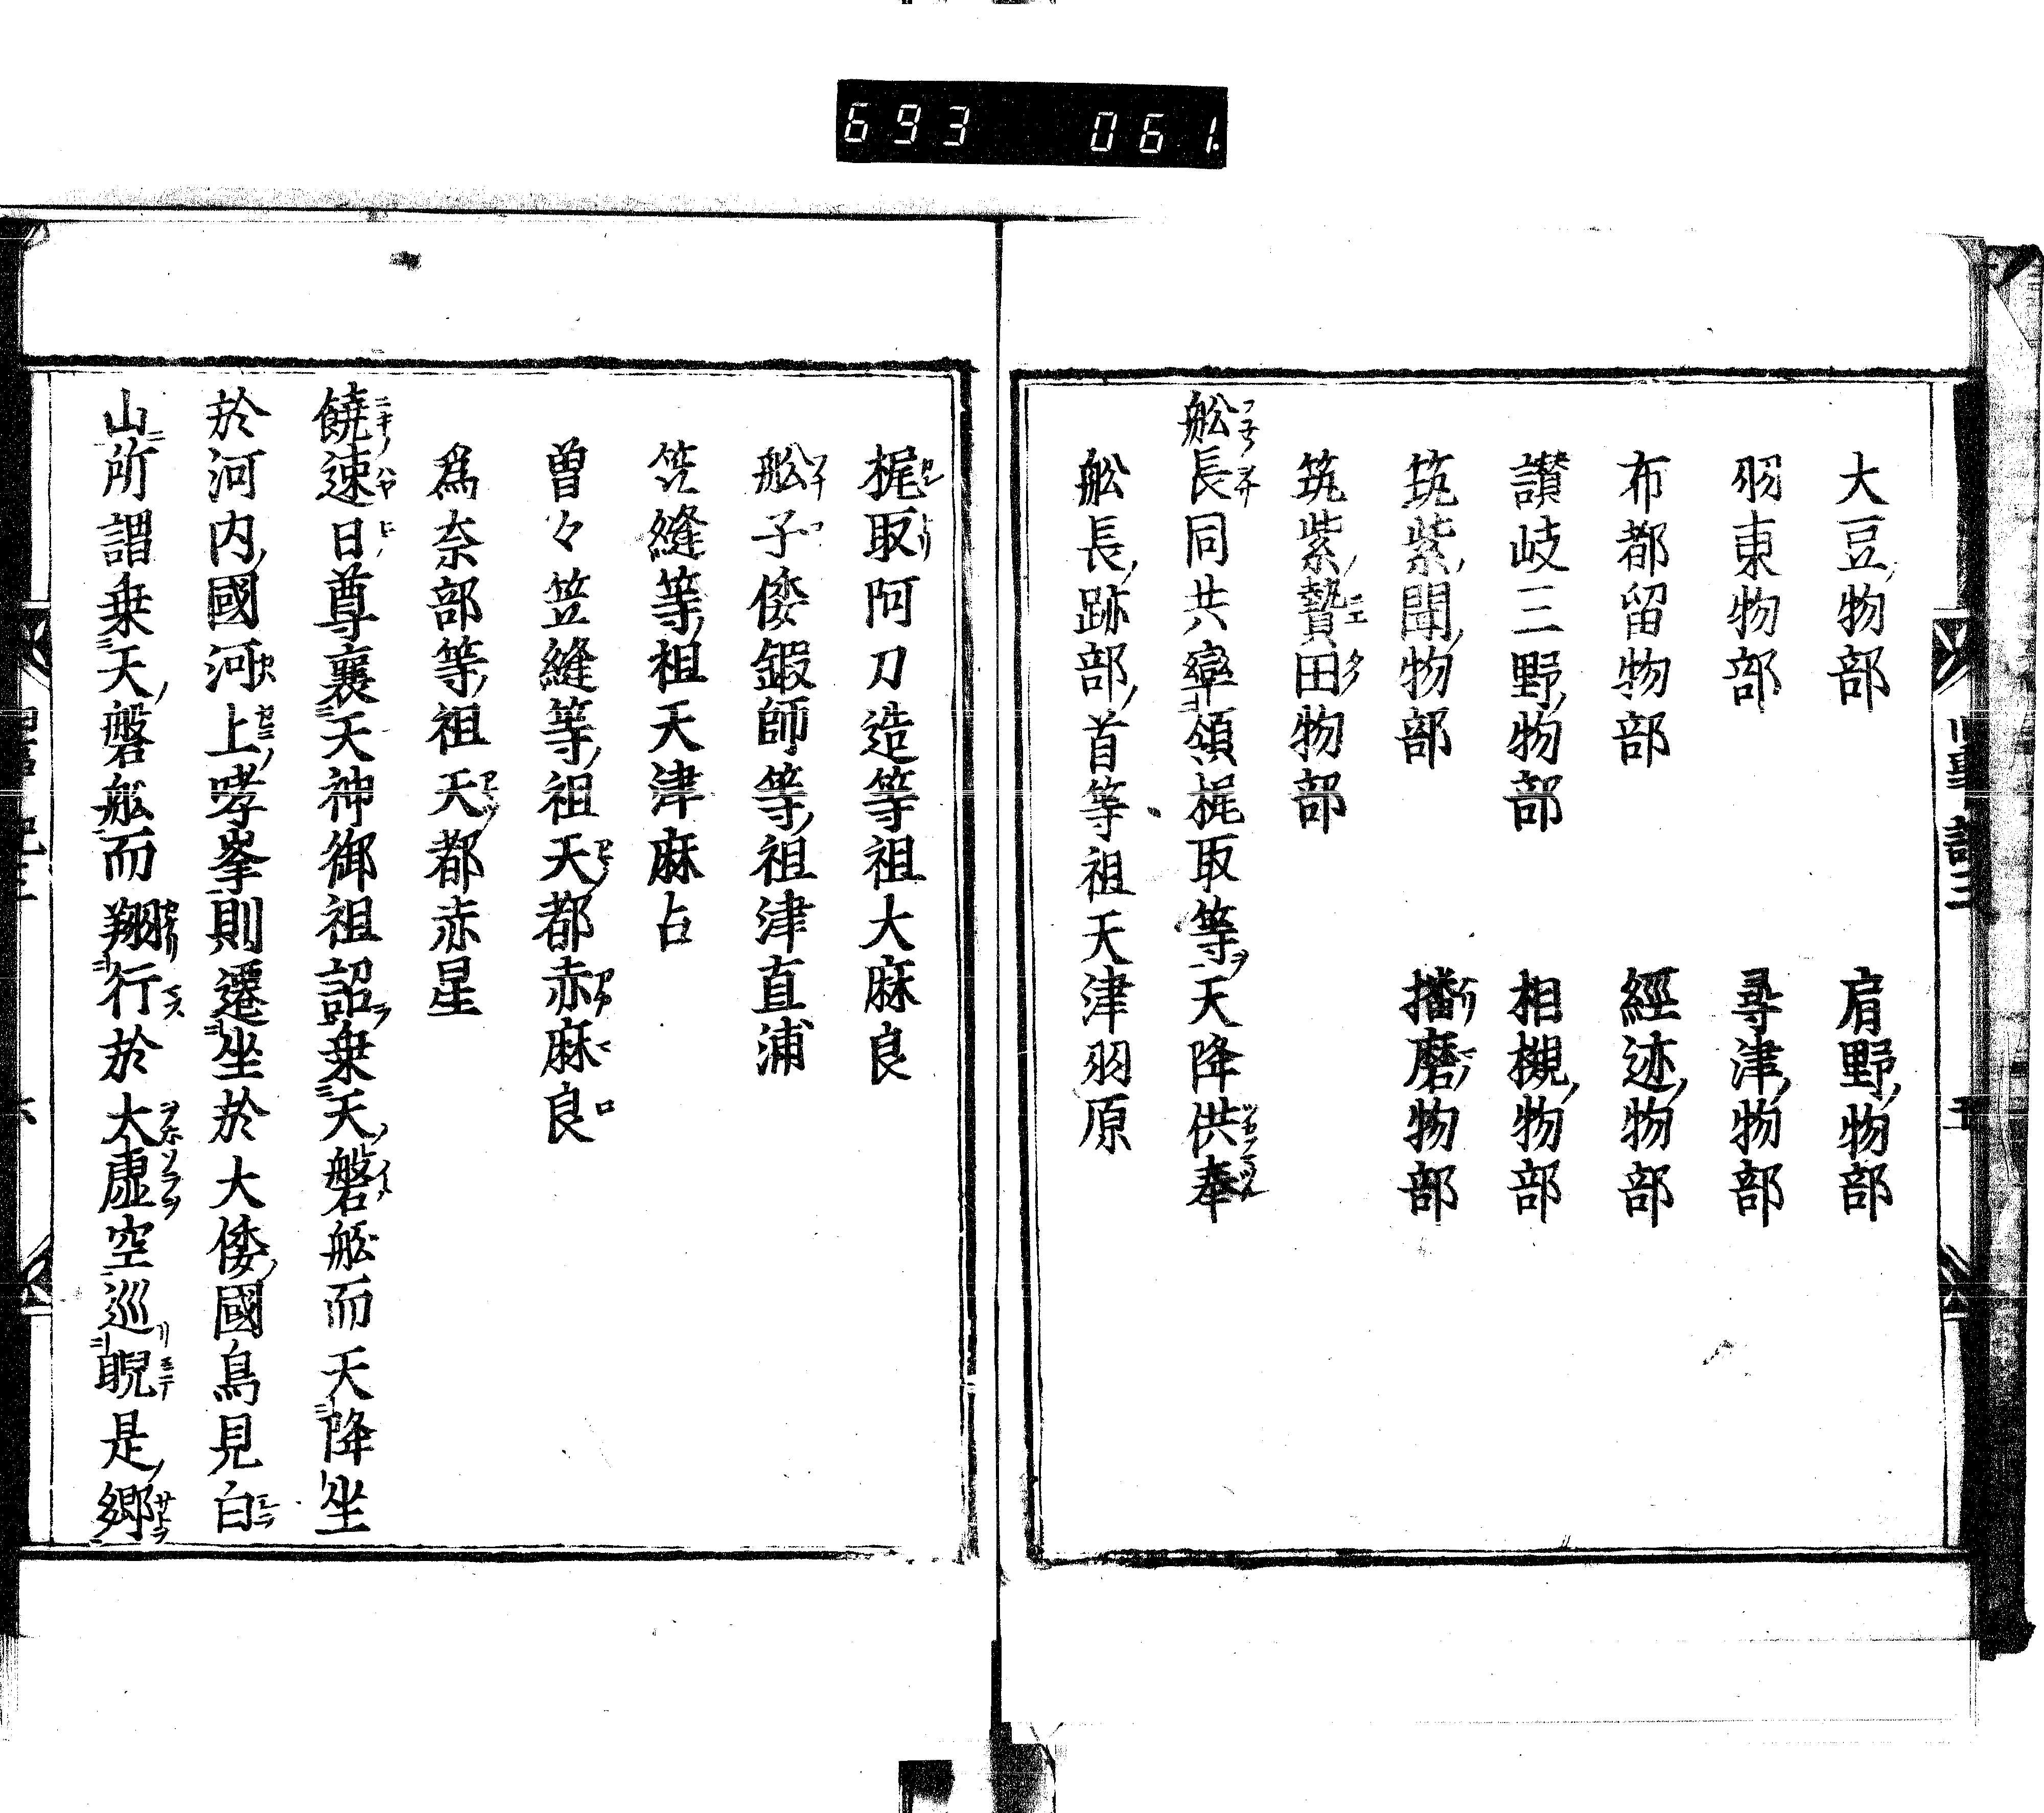 693 061.
大豆物部 肩野物部
羽東物部 尋津物部
布都留物部 經迹物部
讃岐三野物部 相槻物部
筑紫聞物部 播磨物部
筑紫贄田物部
舩長同共率領梶取等天降供奉
舩長跡部首等祖天津羽原
梶取阿刀造等祖大麻良
舩子倭鍛師等祖津直浦
笠縫等祖天津麻占
曽々笠縫等祖天都赤麻良
爲奈部等祖天都赤星
饒速日尊襄天神御祖詔乗天磐舩而天降坐
於河内國河上哮峯則遷坐於大倭國鳥見白
山所謂乗天磐舩而翔行於大虚空巡睨是郷